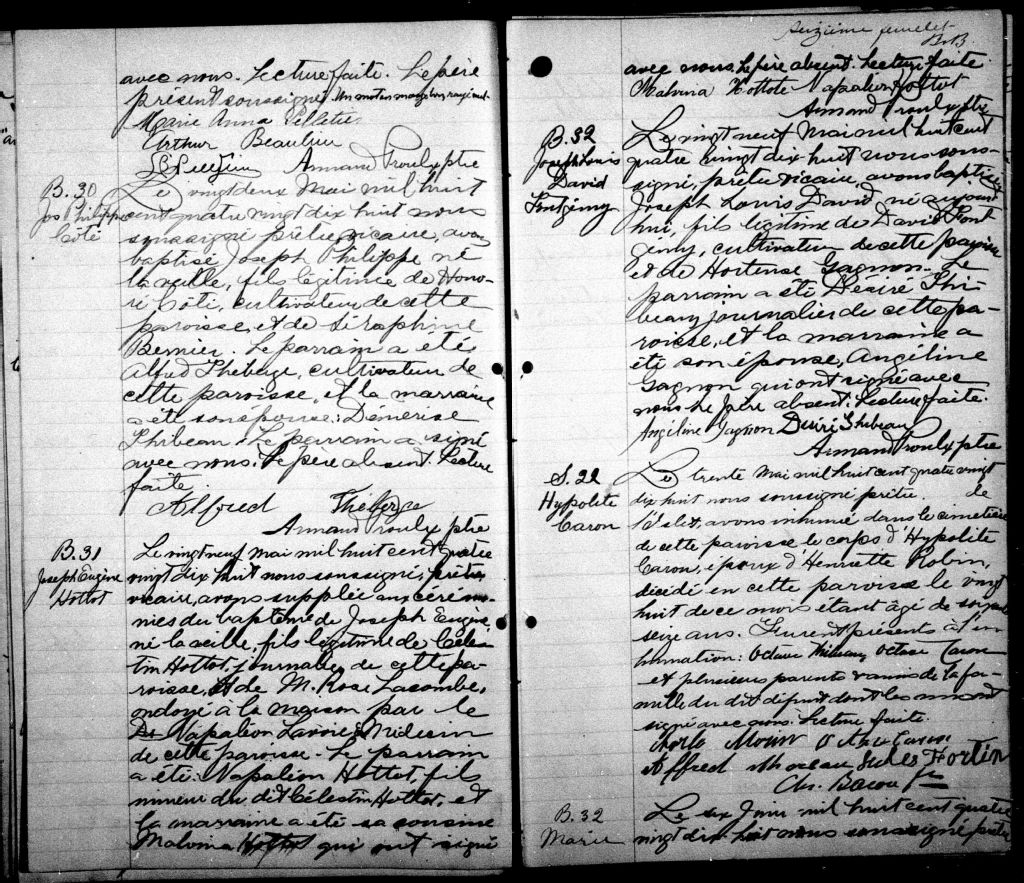 avec nous. Lecture faite. Le père
présent soussigné. Un mot en marge bon rayé nul.
Marie Anna Pelletier
Arthur Beaulieu
Armand Proulx ptre
B. 30
Jos Philippe
Côté
Le vingt deux Mai mil huit
cent quatre vingt dix huit nous
soussigné prêtre vicaire, avons
baptisé Joseph Philippe né
la veille, fils légitime de Hono-
ré Côté, cultivateur de cette
paroisse, et de Séraphine
Bernier. Le parrain a été
Alfred Theberge, cultivateur de
cette paroisse, et la marraine
a été son épouse: Démerise
Thibeau. Le parrain a signé
avec nous. Le père absent. Lecture
faite.
Alfred Theberge
Armand Proulx ptre
B. 31
Joseph Eugène
Hottot
Le vingt neuf mai mil huit cent quatre
vingt dix huit nous soussigné, prêtre
vicaire, avons supplée aux cérémo-
nies du baptême de Joseph Eugène
né la veille, fils légitime de Céles-
tin Hottot, journalier de cette pa-
roisse, et de M. Rose Lacombe,
ondoyé à la maison par le
Dr Napoléon Lavoie Médecin
de cette paroisse. Le parrain
a été: Napoléon Hottot, fils
mineur du dit Célestin Hottot, et
la marraine a été sa cousine
Malvina Hottot qui ont signé
seizième feuillet
B.B.
avec nous. Le père absent. Lecture faite
Malvina Hottote Napaléon Hottot
Armand Proulx ptre
B. 32
Joseph Louis
David
Fontgémy
Le vingt neuf Mai mil huit cent
quatre vingt dix huit nous sous-
signé, prêtre vicaire, avons baptisé
Joseph Louis David, né aujourd
hui, fils légitime de David Font
gémy, cultivateur de cette paroisse
et de Hortense Gagnon. Le
parrain a été Désiré Thi-
beau, journalier de cette pa-
roisse, et la marraine a
été son épouse, Angéline
Gagnon qui ont signé avec
nous. Le père absent. Lecture faite.
Angiline Gagnon Desiré Thibeau
Armand Proulx ptre
S. 22
Hypolite
Caron
Le trente Mai mil huit cent quatre vingt
dix huit nous soussigné prêtre. de
l'Islet, avons inhumé dans le cimetière
de cette paroisse le corps d'Hypolite
Caron, époux d'Henriette Robin,
décédé en cette paroisse le vingt
huit de ce mois étant âgé de soixante
seize ans. Furent présents à l'in-
humation: Octave Octave Caron
et plusieurs parents & amis de la fa-
mille du dit défunt dont les uns ont
signé avec nous. Lecture faite.
Morin Octave Caron
Alfred Moreau Jules Fortin
Chs. Bacon ptre
B. 32
Marie
Le six Juin mil huit cent quatre
vingt dix huit nous soussigné prêtre